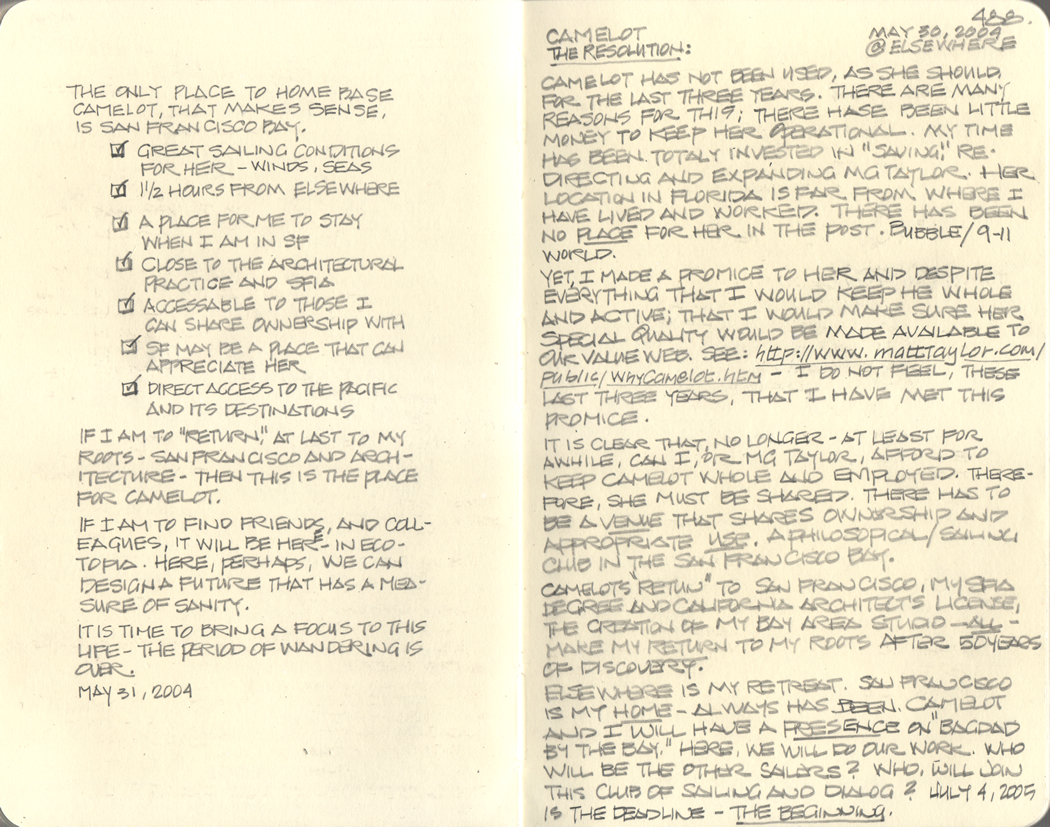 THE ONLY PLACE TO HOME BASE
CAMELOT, THAT MAKES SENSE,
IS SAN FRANCISCO BAY.
☑ GREAT SAILING CONDITIONS
FOR HER – WINDS, SEAS
☑ 1 1/2 HOURS FROM ELSEWHERE
☑ A PLACE FOR ME TO STAY
WHEN I AM IN SF
☑ CLOSE TO THE ARCHITECTURAL
PRACTICE AND SFIA
☑ ACCESSABLE TO THOSE I
CAN SHARE OWNERSHIP WITH
☑ SF MAY BE A PLACE THAT CAN
APPRECIATE HER
☑ DIRECT ACCESS TO THE PACIFIC
AND ITS DESTINATIONS
IF I AM TO "RETURN," AT LAST TO MY
ROOTS – SAN FRANCISCO AND ARCH-
ITECTURE – THEN THIS IS THE PLACE
FOR CAMELOT.
IF I AM TO FIND FRIENDS, AND COLL-
EAGUES, IT WILL BE HERE – IN ECO-
TOPIA. HERE, PERHAPS, WE CAN
DESIGN A FUTURE THAT HAS A MEA-
SURE OF SANITY.
IT IS TIME TO BRING A FOCUS TO THIS
LIFE – THE PERIOD OF WANDERING IS
OVER.
MAY 31, 2004
488.
CAMELOT MAY 30, 2004
THE RESOLUTION: @ ELSEWHERE
CAMELOT HAS NOT BEEN USED, AS SHE SHOULD,
FOR THE LAST THREE YEARS. THERE ARE MANY
REASONS FOR THIS; THERE HASE BEEN LITTLE
MONEY TO KEEP HER OPERATIONAL. MY TIME
HAS BEEN TOTALY INVESTED IN "SAVING," RE-
DIRECTING AND EXPANDING MG TAYLOR. HER
LOCATION IN FLORIDA IS FAR FROM WHERE I
HAVE LIVED AND WORKED. THERE HAS BEEN
NO PLACE FOR HER IN THE POST. BUBBLE/9-11
WORLD.
YET, I MADE A PROMICE TO HER AND DESPITE
EVERYTHING THAT I WOULD KEEP HE WHOLE
AND ACTIVE; THAT I WOULD MAKE SURE HER
SPECIAL QUALITY WOULD BE MADE AVAILABLE TO
OUR VALUE WEB. SEE: http://www.matttaylor.com/
public/whyCamelot.htm – I DO NOT FEEL, THESE
LAST THREE YEARS, THAT I HAVE MET THIS
PROMICE.
IT IS CLEAR THAT, NO LONGER – AT LEAST FOR
AWHILE, CAN I, OR MG TAYLOR, AFFORD TO
KEEP CAMELOT WHOLE AND EMPLOYED. THERE-
FORE, SHE MUST BE SHARED. THERE HAS TO
BE A VENUE THAT SHARES OWNERSHIP AND
APPROPRIATE USE. A PHILOSOPICAL/SAILING
CLUB IN THE SAN FRANCISCO BAY.
CAMELOT'S "RETUN" TO SAN FRANCISCO, MY SFIA
DEGREE AND CALIFORNIA ARCHITECT'S LICENSE,
THE CREATION OF MY BAY AREA STUDIO – ALL –
MAKE MY RETURN TO MY ROOTS AFTER 50 YEARS
OF DISCOVERY.
ELSEWHERE IS MY RETREAT. SAN FRANCISCO
IS MY HOME – ALWAYS HAS BEEN. CAMELOT
AND I WILL HAVE A PRESENCE ON "BAGDAD
BY THE BAY." HERE, WE WILL DO OUR WORK. WHO
WILL BE THE OTHER SAILERS? WHO, WILL JOIN
THIS CLUB OF SAILING AND DIALOG? JULY 4, 2005
IS THE DEADLINE – THE BEGINNING.